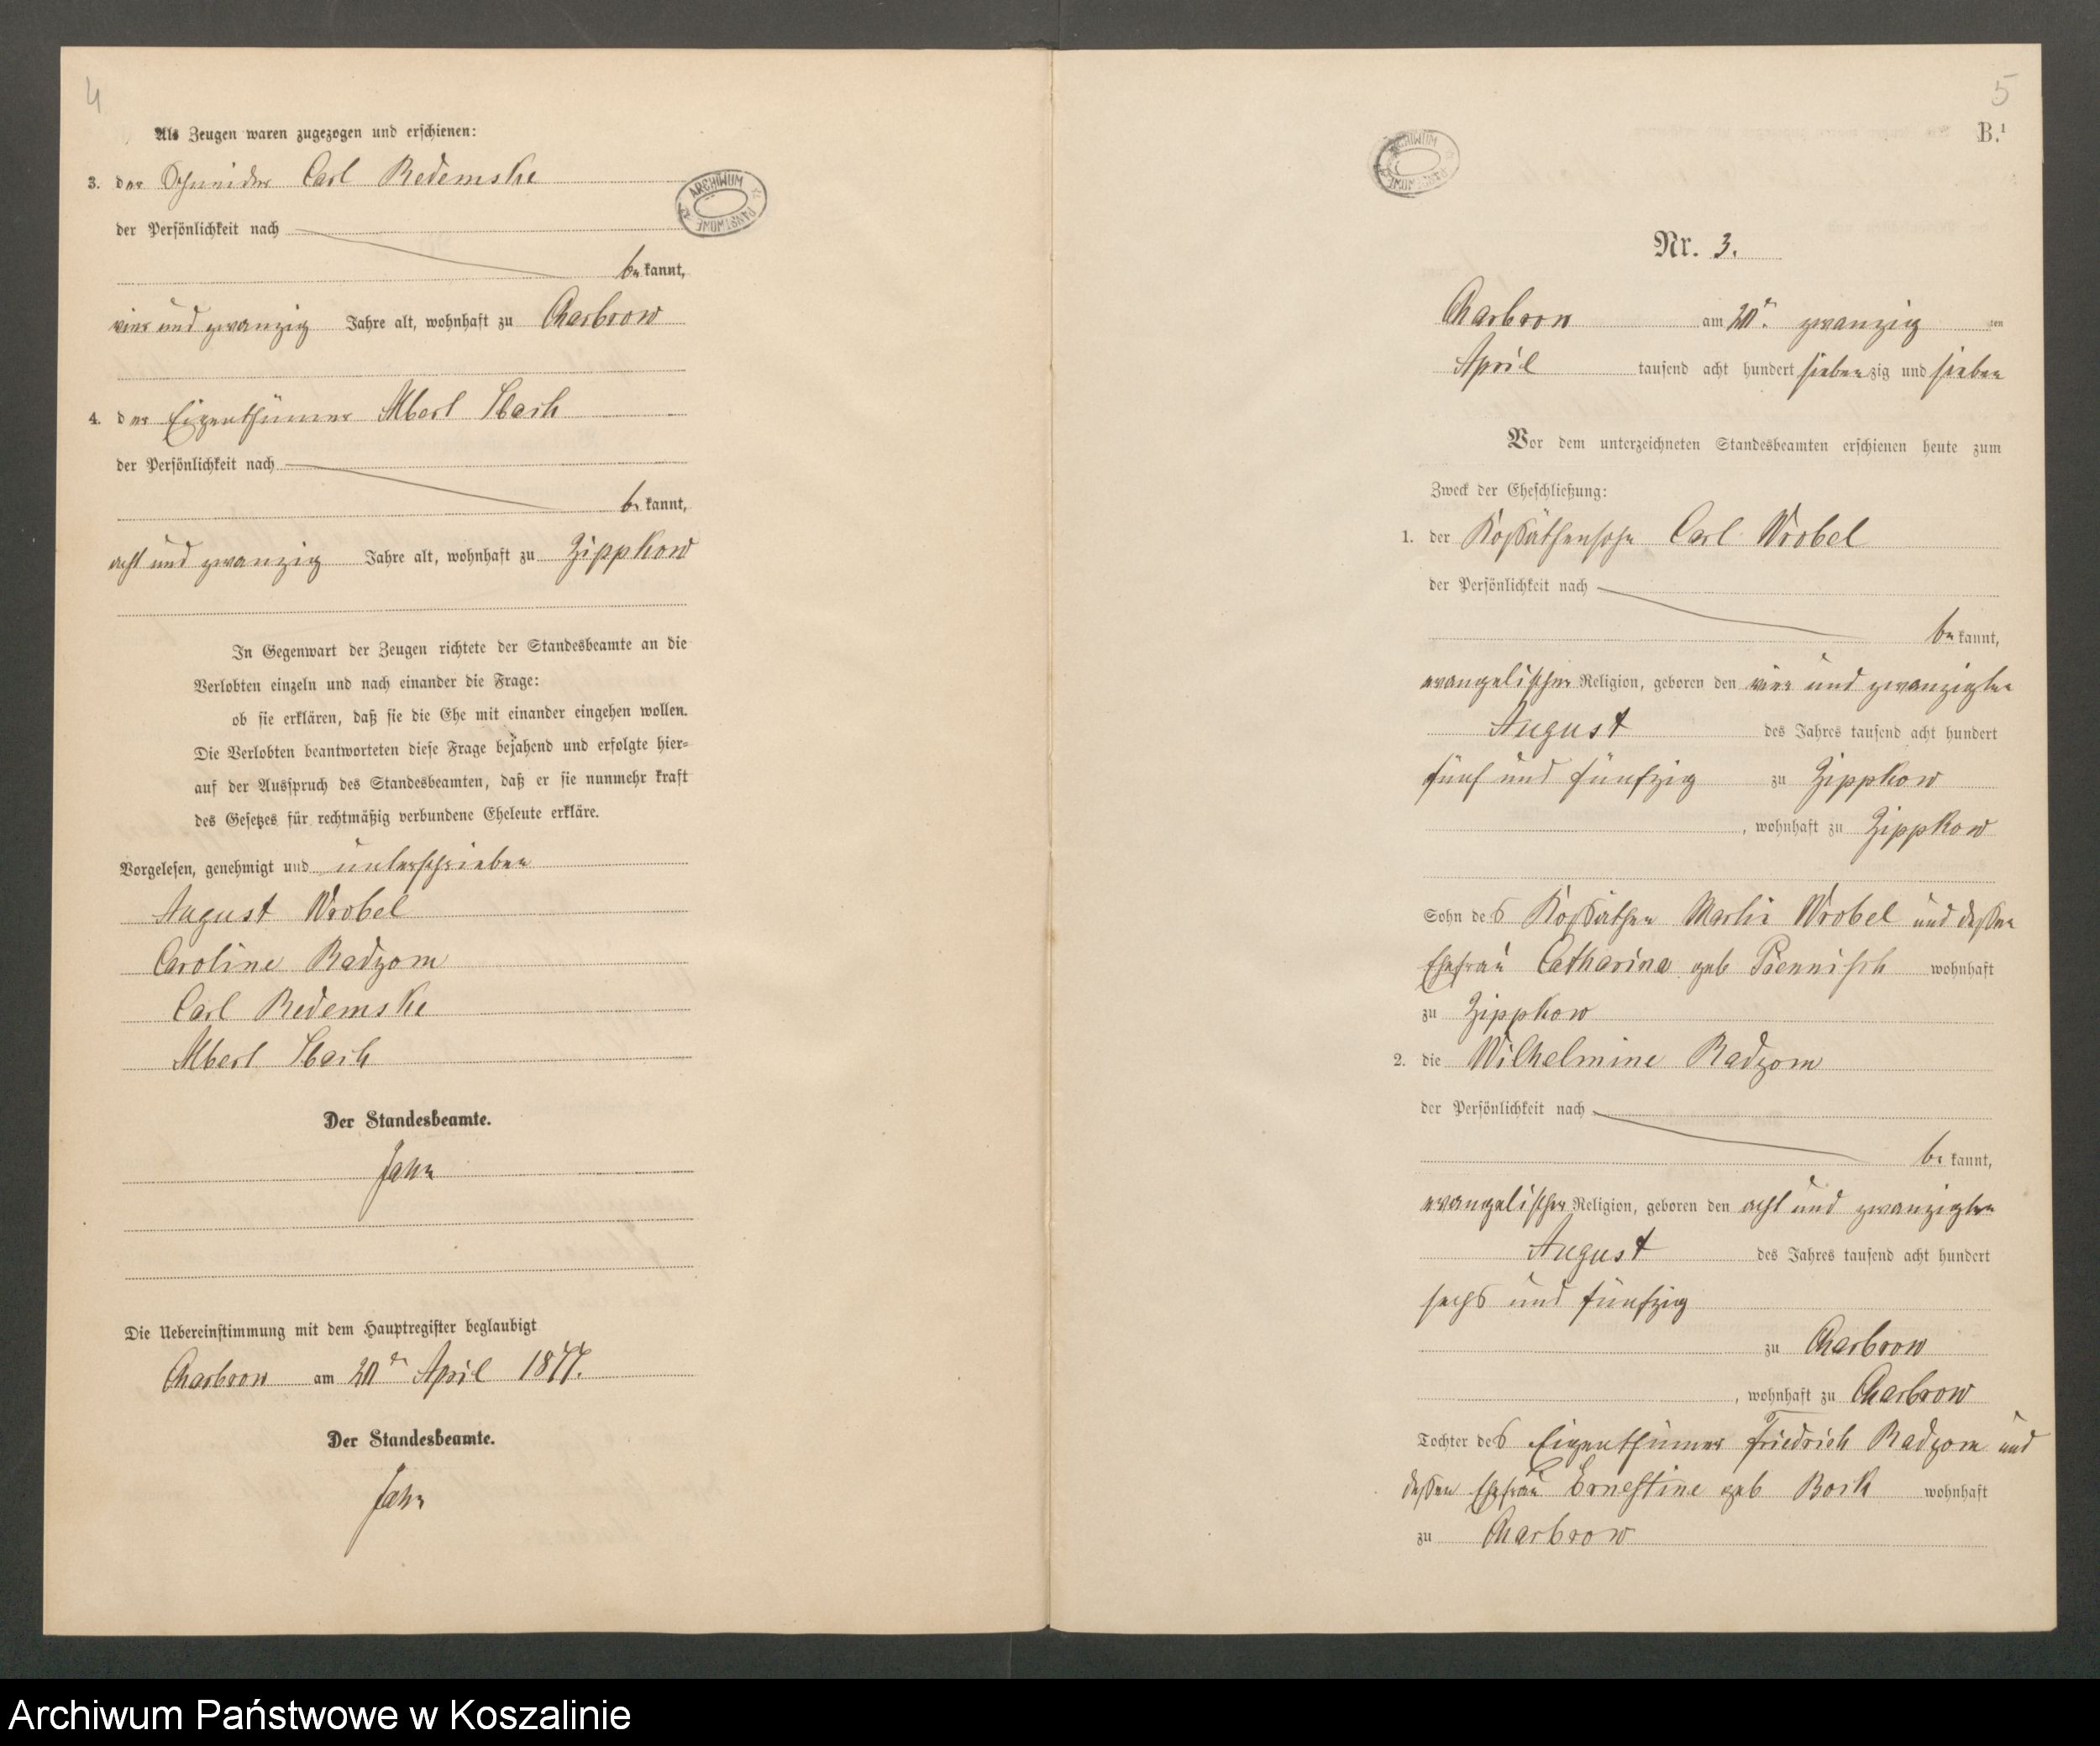 4
Als Zeugen waren zugezogen und erschienen:
3. der Schneider Carl Redemske
der Persönlichkeit nach
be kannt,
vier und zwanzig Jahre alt, wohnhaft zu Charbrow
4. der Eigenthümer Albert
der Persönlichkeit nach
be kannt,
acht und zwanzig Jahre alt, wohnhaft zu Zippkow
In Gegenwart der Zeugen richtete der Standesbeamte an die
Verlobten einzeln und nach einander die Frage:
ob sie erklären, daß sie die Ehe mit einander eingehen wollen.
Die Verlobten beantworteten diese Frage bejahend und erfolgte hier-
auf der Ausspruch des Standesbeamten, daß er sie nunmehr kraft
des Gesetzes für rechtmäßig verbundene Eheleute erkläre.
Vorgelesen, genehmigt und unterschrieben
August Wrobel
Caroline Radzom
Carl Redemske
Albert
Der Standesbeamte.
Jahn
Die Uebereinstimmung mit dem Hauptregister beglaubigt
Charbrow am 20n April 1877.
Der Standesbeamte.
Jahn
ARCHIWUM PAŃSTWOWE
5
B.¹
ARCHIWUM PAŃSTWOWE
Nr. 3.
Charbrow am 20n. zwanzig ten
April tausend acht hundert sieben zig und sieben
Vor dem unterzeichneten Standesbeamten erschienen heute zum
Zweck der Eheschließung:
1. der Koßäthensohn Carl Wrobel
der Persönlichkeit nach
be kannt,
evangelischer Religion, geboren den vier und zwanzigten
August des Jahres tausend acht hundert
fünf und fünfzig zu Zippkow
, wohnhaft zu Zippkow
Sohn des Koßäthen Wrobel und deßen
Ehefrau Catharina geb wohnhaft
zu Zippkow
2. die Wilhelmine Radzom
der Persönlichkeit nach
be kannt,
evangelischer Religion, geboren den acht und zwanzigten
August des Jahres tausend acht hundert
sechs und fünfzig
zu Charbrow
, wohnhaft zu Charbrow
Tochter des Eigenthümer Friedrich Radzom und
deßen Ehefrau Ernestine geb Bork wohnhaft
zu Charbrow
Archiwum Państwowe w Koszalinie